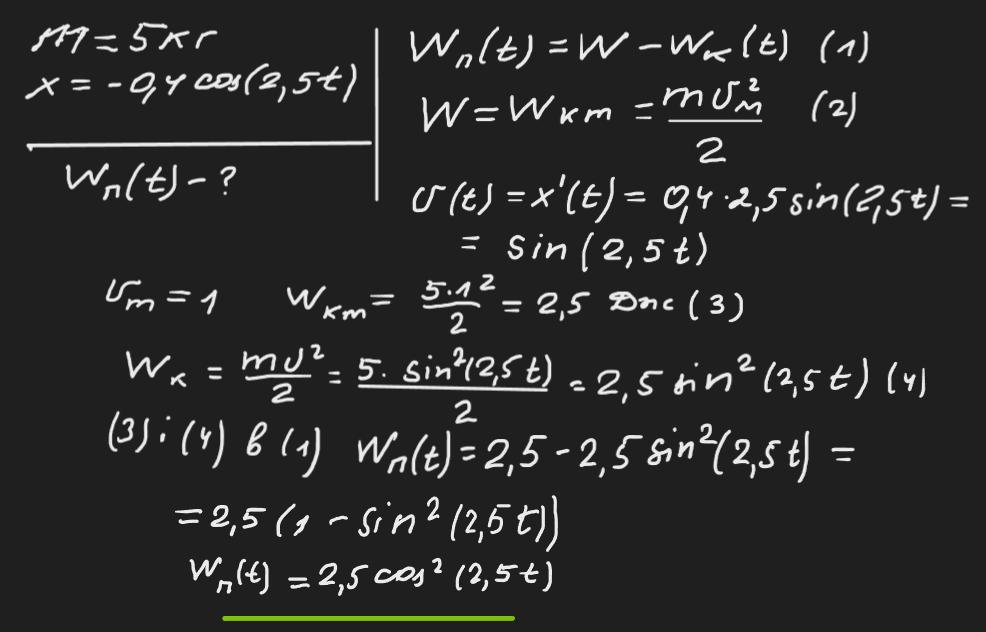 m = 5 кг
x = -0,4 cos(2,5t)
Wп(t) - ?
Wп(t) = W - Wк(t) (1)
W = Wкm = mυ²м/2 (2)
υ(t) = x'(t) = 0,4·2,5 sin(2,5t) =
= sin(2,5t)
υm = 1 Wкm = 5·1²/2 = 2,5 Дж (3)
Wк = mυ²/2 = 5·sin²(2,5t)/2 = 2,5 sin²(2,5t) (4)
(3) і (4) в (1) Wп(t) = 2,5 - 2,5 sin²(2,5t) =
= 2,5 (1 - sin²(2,5t))
Wп(t) = 2,5 cos²(2,5t)